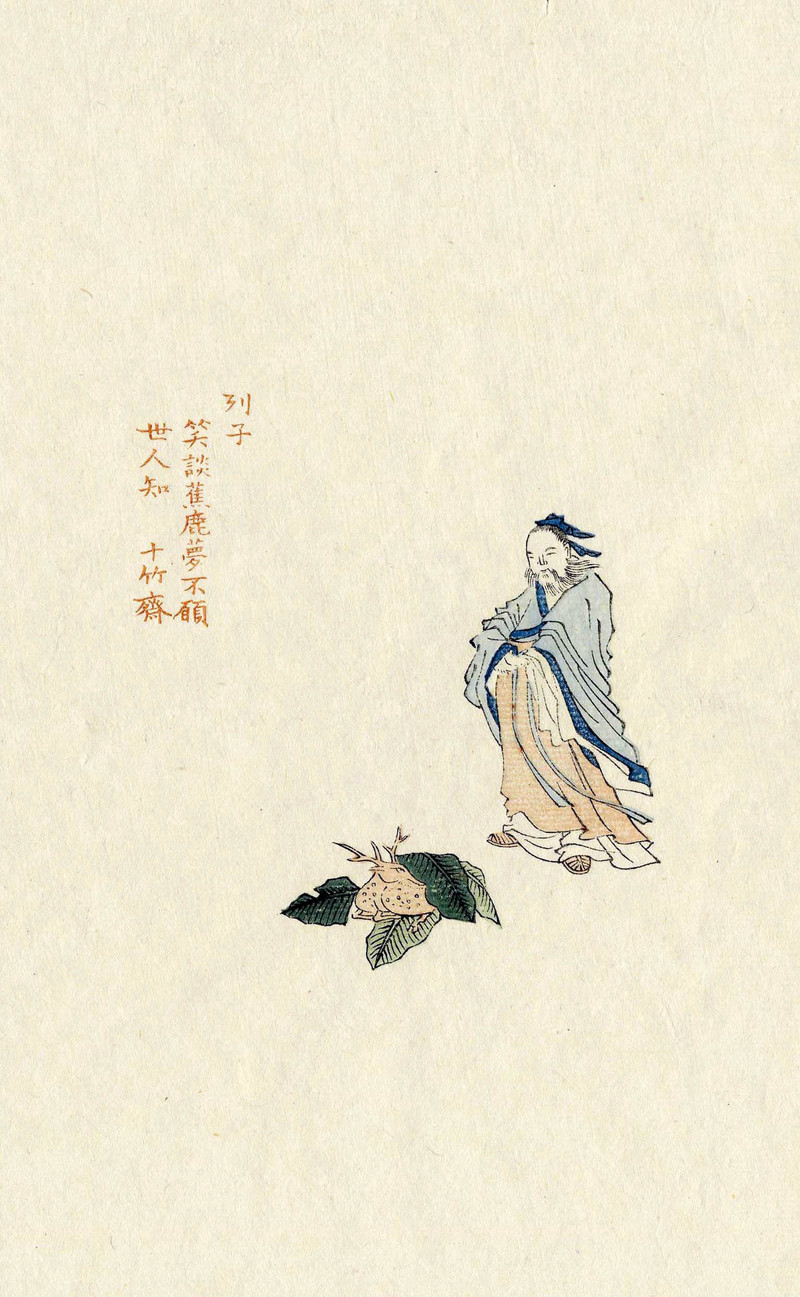 列子
笑談蕉鹿夢不願
世人知 十竹齋